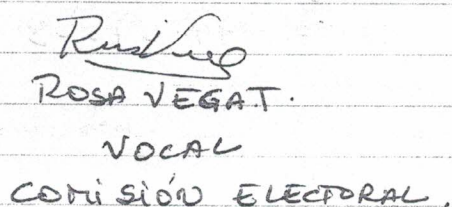 ROSA VEGA T.
VOCAL
COMISIÓN ELECTORAL.